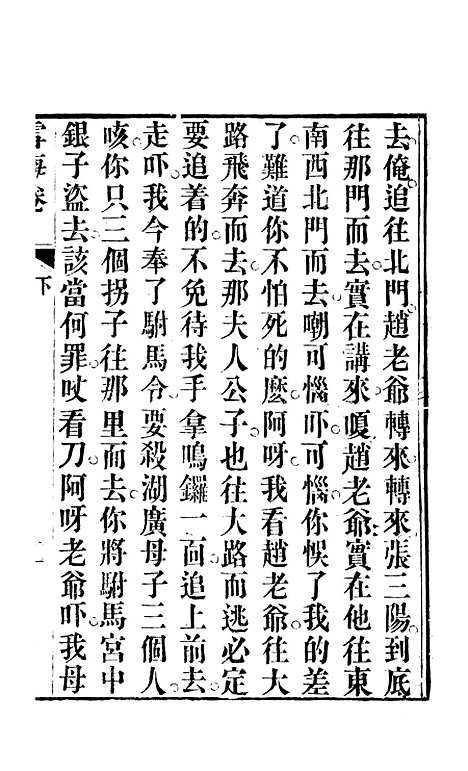 去俺追往北門趙老爺轉來轉來張三陽到底
往那門而去實在講來嗄趙老爺實在他往東
南西北門而去嘲可惱吓可惱你悞了我的差
了難道你不怕死的麽阿呀我看趙老爺往大
路飛奔而去那夫人公子也往大路而逃必定
要追着的不免待我手拿鳴鑼一面追上前去
走吓我今奉了駙馬令要殺湖廣母子三個人
咳你只三個拐子往那里而去你將駙馬宮中
銀子盜去該當何罪哎看刀阿呀老爺吓我母
卷
下